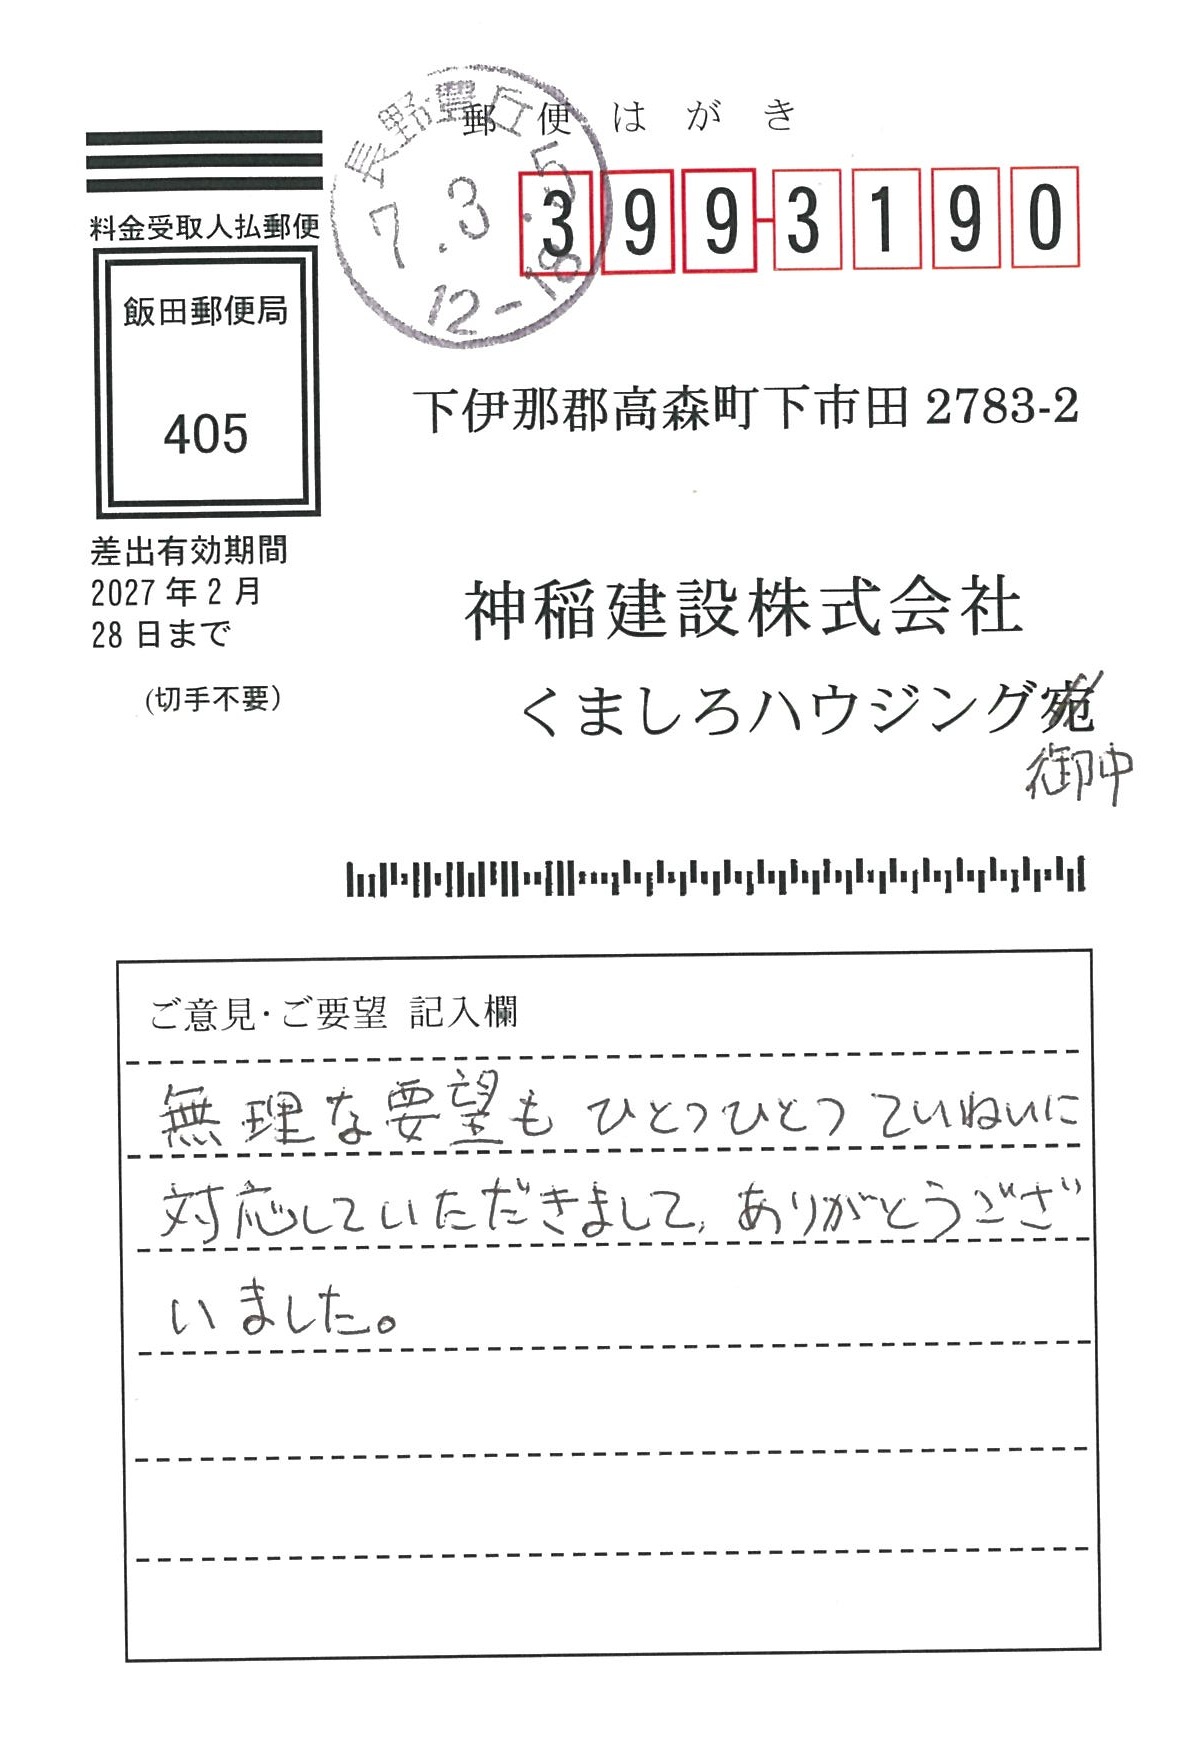 郵便はがき
長野豊丘
7.3.5
12-18
399-3190
料金受取人払郵便
飯田郵便局
405
差出有効期間
2027年2月
28日まで
(切手不要)
下伊那郡高森町下市田2783-2
神稲建設株式会社
くましろハウジング宛
御中
ご意見・ご要望 記入欄
無理な要望もひとつひとつていねいに
対応していただきまして、ありがとうござ
いました。